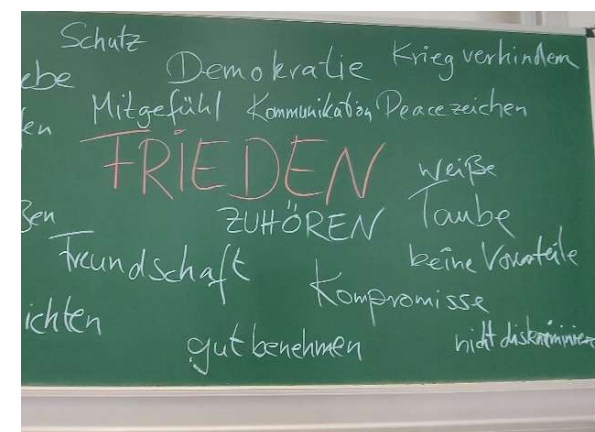 Schutz
Demokratie
Krieg verhindern
ebe
Mitgefühl Kommunikation Peacezeichen
en
FRIEDEN
weiße
Taube
ßen
ZUHÖREN
Freundschaft
keine Vorurteile
Kompromisse
ichten
gut benehmen
nicht diskriminieren